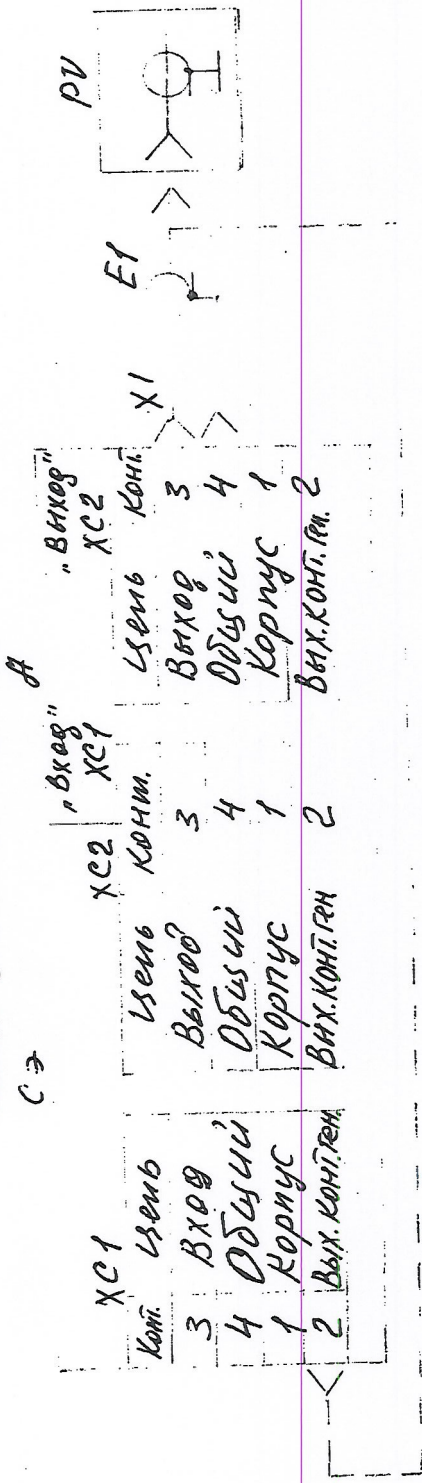 СЭ
А
XC1
Конт. Цепь
3 Вход
4 Общий
1 Корпус
2 Вых.Конт.Ген.
XC2
Цепь Конт.
Выход 3
Общий 4
Корпус 1
Вых.Конт.Ген 2
„Вход"
XC1
„Выход"
XC2
Цепь Конт.
Выход 3
Общий 4
Корпус 1
Вых.Конт.Ген. 2
X1
E1
PV